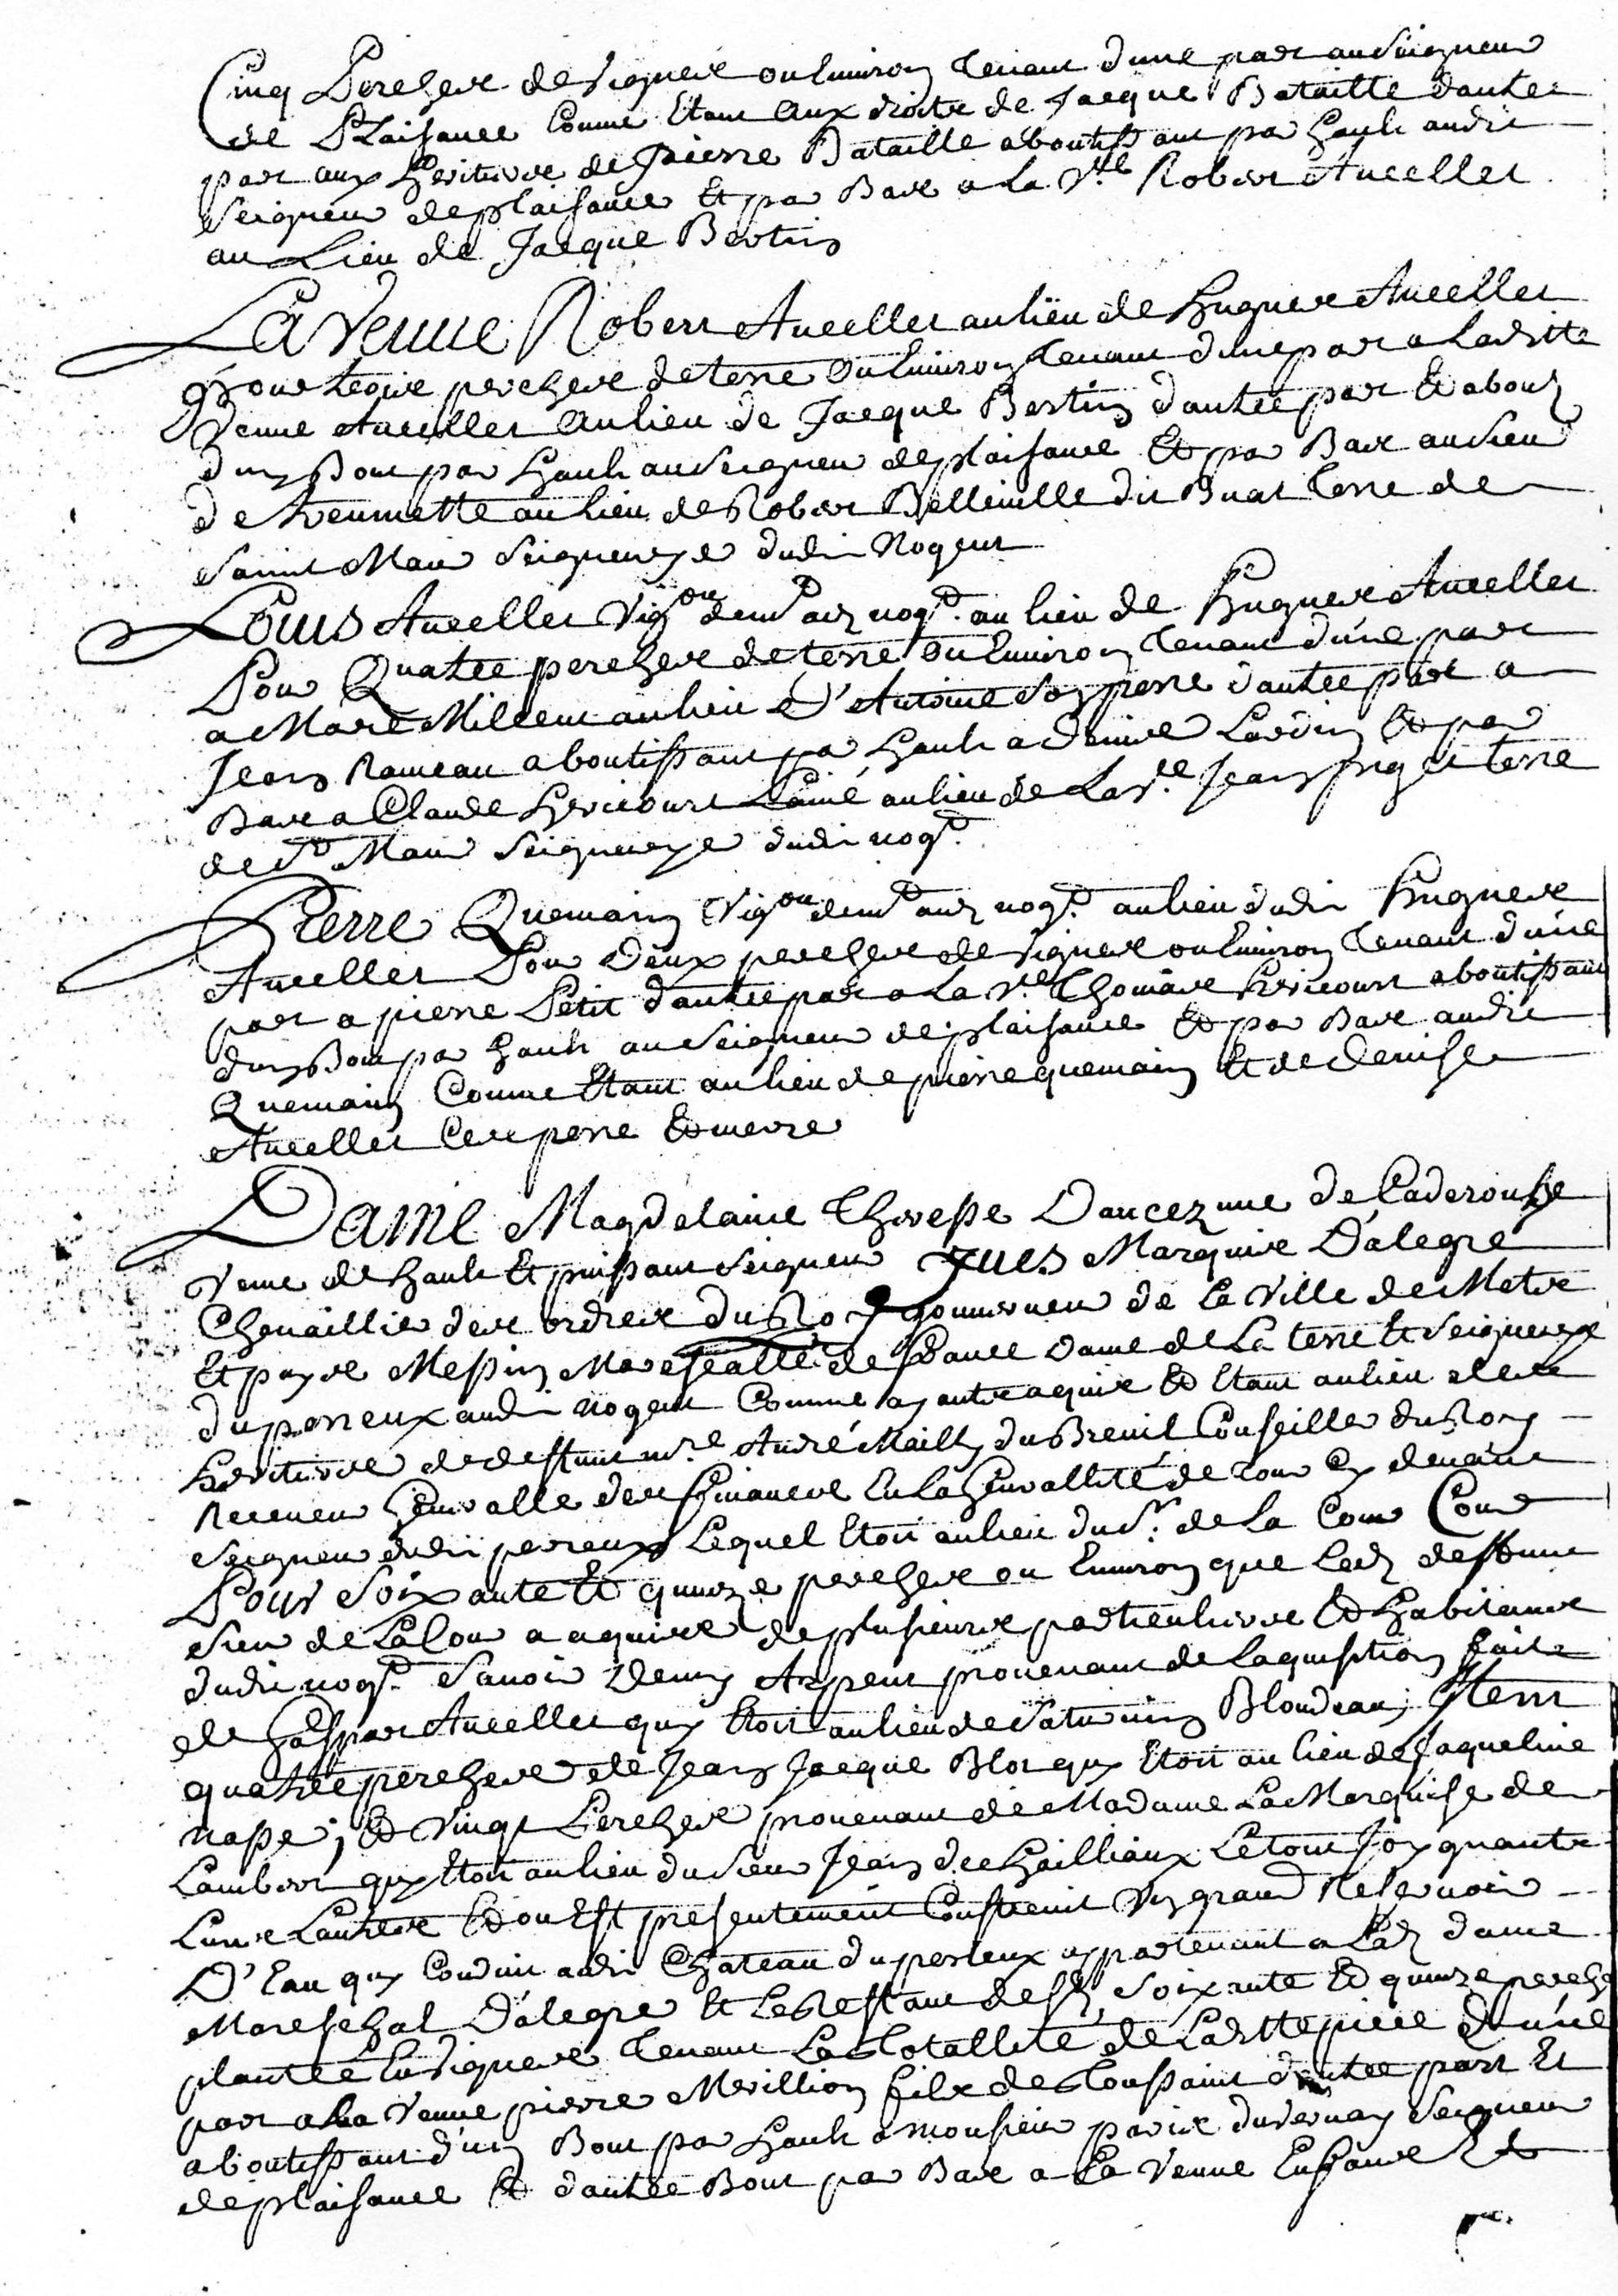 Cinq Perches de vignes ou Environ tenant dune part au Seigneur
de Plaisance Comme Etant aux droits de Jacque Bataille dautre
part aux heritiers de Pierre Bataille aboutissant par hault audit
Seigneur de plaisance Et par Bas a la Vve Robert Aucellet
au Lieu de Jacque Bertin
La Veuve Robert Aucellet au lieu de Hugues Aucellet
pour perches de terre ou Environ tenant dune part a Laditte
Veuve Aucellet au lieu de Jacque Bertin dautre part Et about
dun Bout par hault au Seigneur de plaisance Et par Bas au Sieur
de au lieu de Robert Belleville dit Buat Terre de
Saint Maur Seigneurye dudit Nogent
Louis Aucellet Vigon demt audt nogt. au lieu de Hugues Aucellet
Pour Quatre perches de terre ou Environ tenant dune part
a Marc Millent au lieu D'Antoine Son pere dautre part a
Jean Rameau aboutissant par hault a Denise Lardin Et par
Bas a Claude Hericourt Lainé au lieu de La Ve. Jean terre
de St Maur Seigneurye dudit nogt.
Pierre Quemain Vigon demt audt nogt. au lieu dudit Hugues
Aucellet Pour Deux perches de vignes ou Environ tenant dune
part a pierre Petit dautre part a La Vve Thomas Hericourt aboutissant
dun Bout par hault au Seigneur de plaisance Et par Bas audit
Quemain Comme Etant au lieu de pierre quemain Et de Denise
Aucellet Ces pere Et mere
Dame Magdelaine Theresse Dancezune de Caderousse
Veuve de hault Et puissant Seigneur Yves Marquis D'alegre
Chevaillier des ordres du Roy gouverneur de La Ville de Mets
Et pays Messin Mareschalle de France Dame de La terre Et Seigneurye
du perreux audit nogent Comme ayant aquis Et Etant au lieu des
heritiers de deffunt mre. André Mailly du Breuil Conseiller du Roy
Receveur Generalle des finances En La Generallité de Tours Cy devant
Seigneur dudit perreux Lequel Etoit au lieu du Sr. de La Cour
Pour Soixante Et quinze perches ou Environ que Ledt deffunt
Sieur de La Cour a aquises de plusieurs particuliers Et habitans
dudit nogt. Savoir Demy Arpent provenant de Laquisition faite
de Gaspar Aucellet quy Etoit au lieu de Saturnin Blondeau; Item
quatre perches de Jean Jacque Blot quy Etoit au lieu de Jaqueline
nasse; Et Vingt Perches provenant de Madame La Marquise de
Lambert quy Etoit au lieu du Sieur Jean de Le tout Joygnante
Lune Lautre Et ou Est presentement Construit Un grand Reservoir
D'Eau quy Conduit audit Chateau du perreux appartenant a Ladt dame
Mareschal D'alegre Et Le Restant desdt Soixante Et quinze perche
plantée En vignes Tenant La Totallité de Laditte piece Dune
part a La Veuve pierre Merillion fils de Toussaint dautre part Et
aboutissant d'un Bout par hault a monsieur paris duvernay Seigneur
de plaisance Et dautre Bout par Bas a La Veuve Enfans Et